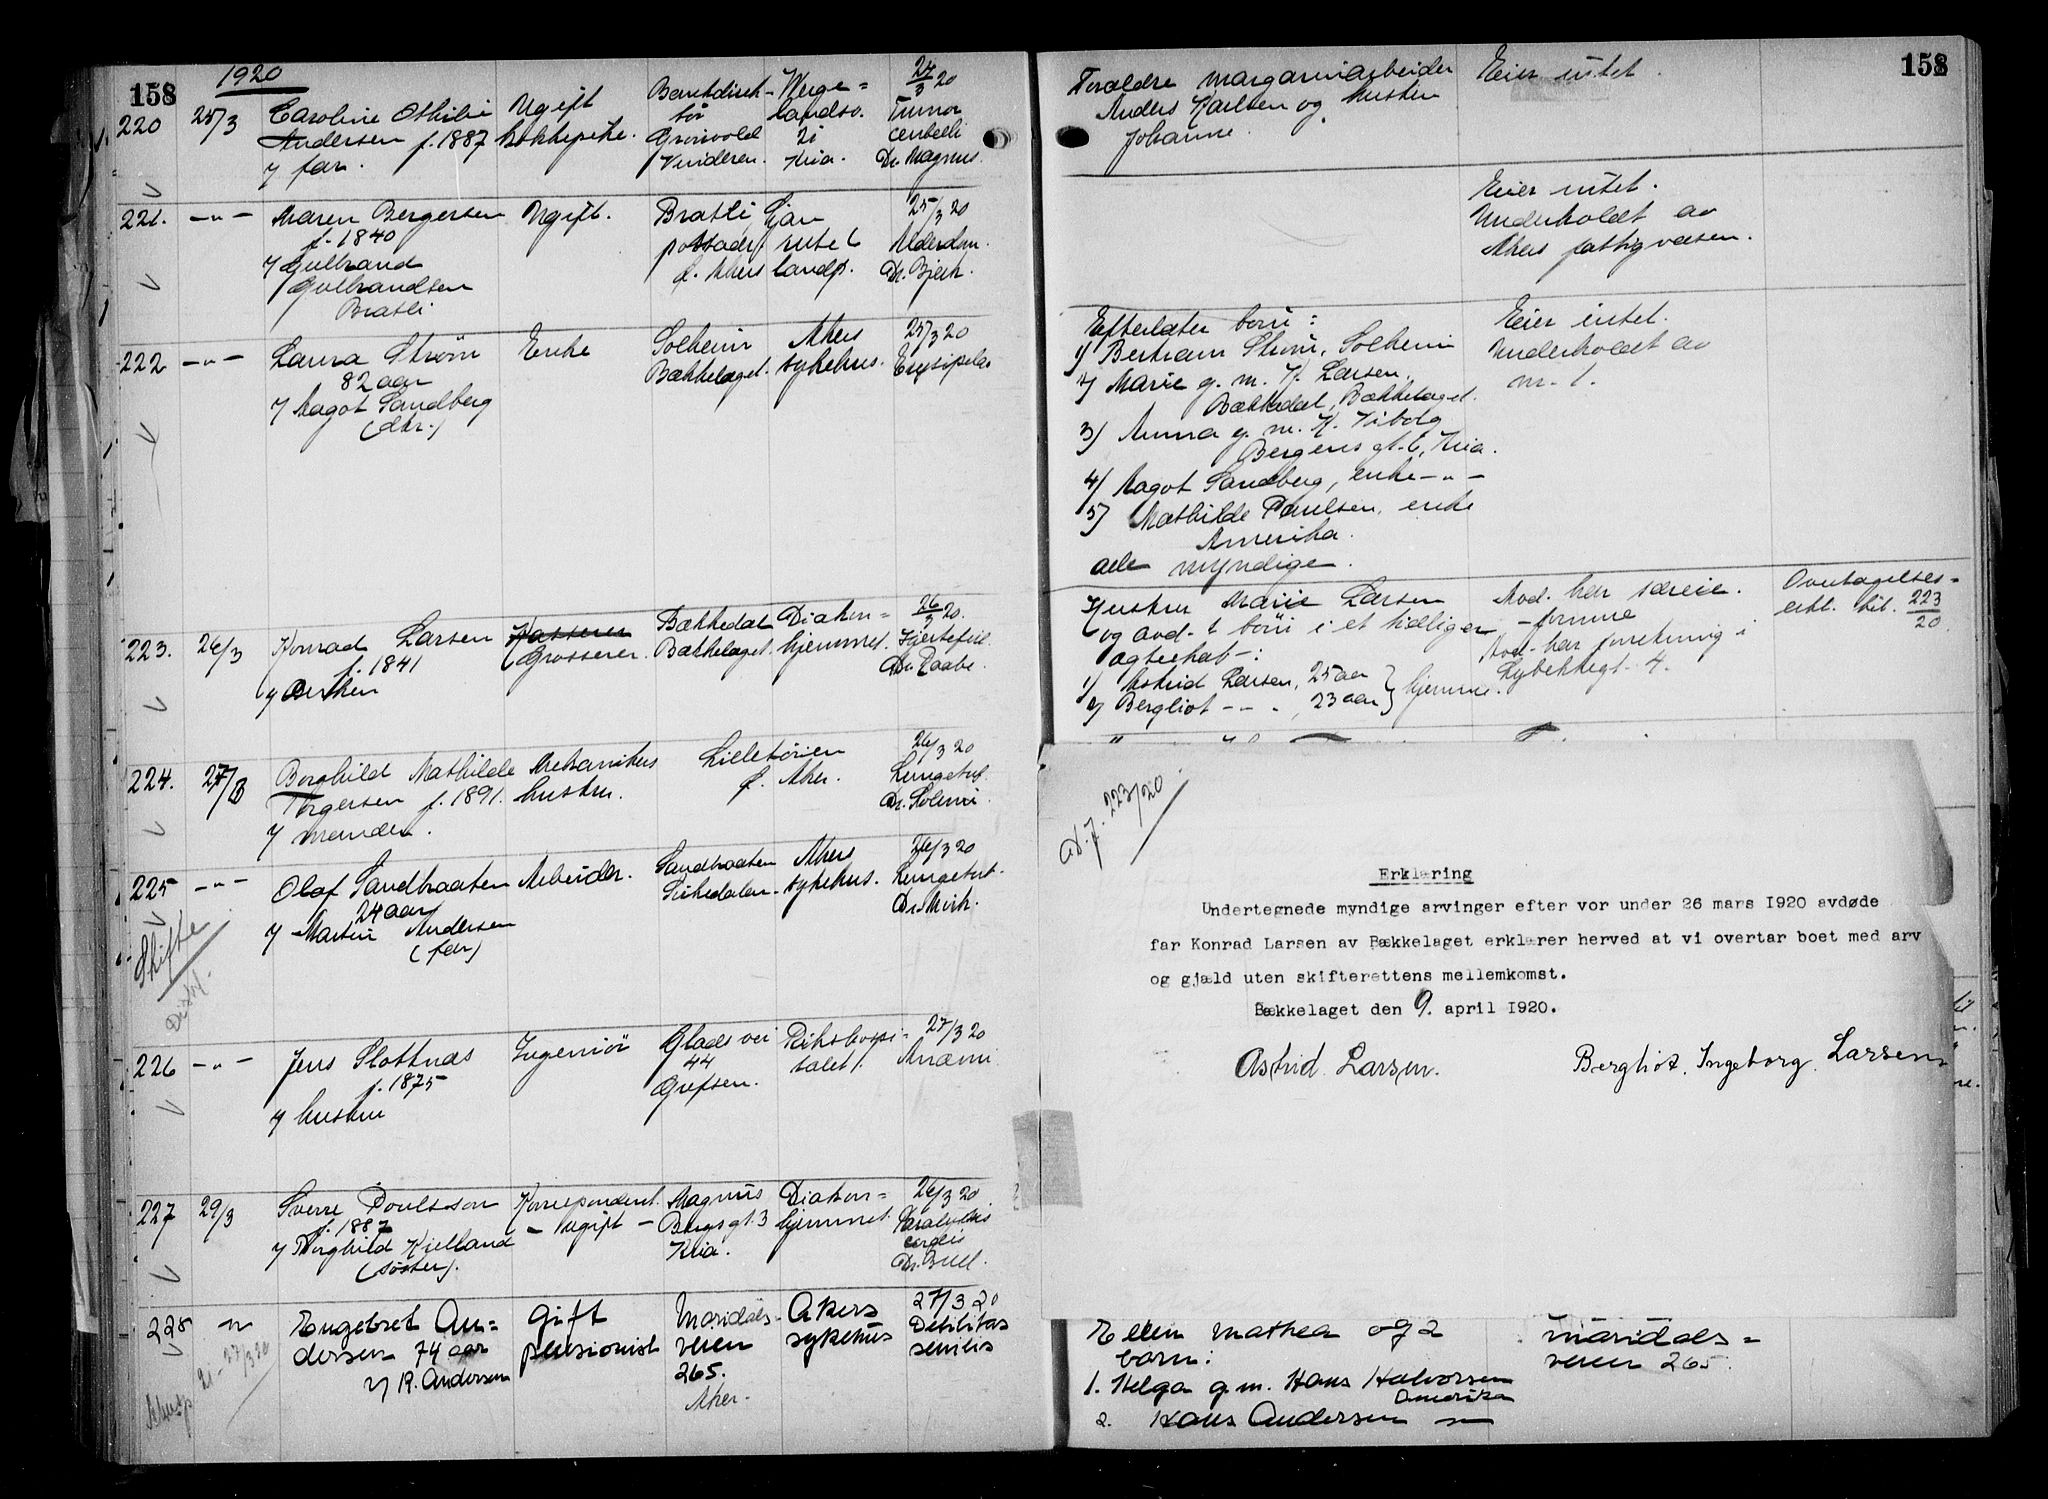 158
1920
220 25/3 Caroline Othilie Ugift Bankdirek- Werge= 24/3 20
Andersen f. 1887 kokkepike. tør landsv. Tumor
y far. Grønvold 21 cerebelli
Vinderen. Kria. Dr. Magnus.
221. -"- Maren Bergersen Ugift. Bratli, Ljan 25/3 20
f. 1840 postaapn rute 6 Alderdom.
y Gulbrand f. Akers landp. Dr. Bjerk.
Gulbrandsen
Bratli
222 -"- Laura Strøm Enke Solheim Akers 25/3 20
82 aar Bækkelaget. sykehus. Erysipelas
y Aagot Sandberg
(dtr.)
223. 26/3 Konrad Larsen Kasserer Bækkedal Diakon= 26/3 20.
f. 1841 Grosserer. Bækkelaget. hjemmet. Hjertefeil
y Enken Dr. Raabe.
224. 27/3 Borghild Mathilde Mekanikers Lilletørien 26/3 20
Torgersen f. 1891. hustru. f. Aker. Lungetub.
y manden. Dr. Solem
225 -"- Olaf Sandbraaten Arbeider. Sandbraaten Akers 26/3 20
24 aar Sørkedalen. sykehus. Lungetub.
y Martin Andersen Dr. Mørk.
(far)
Skifte
226 -"- Jens Slottnæs Ingeniør Glads vei Rikshospi= 27/3 20
f. 1875 44 talet. Anæmi
y hustru Grefsen.
227 29/3 Sverre Poulsson Korrespondent. Magnus Diakon= 26/3 20
f. 1887 - ugift - Bergs gt. 3 hjemmet. Paralysis
y Borghild Kielland Kria. cordis
(søster). Dr. Bull.
228 " Engebret An= Gift Maridals- Akers 27/3 20
dersen 74 aar pensionist veien sykehus Debilitas
y R. Andersen 265. senilis
Aker.
158
Forældre margarinarbeider Eier intet.
Anders Karlsen og hustru
Johanne.
Eier intet.
Underholdt av
Akers fattigvæsen.
Efterlater børn: Eier intet.
1) Bertram Strøm, Solheim Underholdt av
2) Marie g. m. K. Larsen, nr. 1.
Bækkedal, Bækkelaget.
3) Anna g. m. K. Viborg
Bergens gt. 6, Kria.
4) Aagot Sandberg, enke -"-
5) Mathilde Paulsen, enke
Amerika.
alle myndige.
Hustru Marie Larsen Avd. har særeie. Overtagelses=
og avd. 's børn i et tidligere -formue erkl. bil. 223/20
ægteskab: Avd. har forretning i
1) Astrid Larsen, 25 aar } hjemme. Lybekkergt. 4.
2) Bergliot -"-, 23 aar
ad. j. 223/20
Erklæring
Undertegnede myndige arvinger efter vor under 26 mars 1920 avdøde
far Konrad Larsen av Bækkelaget erklærer herved at vi overtar boet med arv
og gjæld uten skifterettens mellemkomst.
Bækkelaget den 9. april 1920.
Astrid Larsen. Bergliot Ingeborg Larsen
Ellen Mathea og 2 Maridals=
barn: veien 265.
1. Helga g.m. Hans Halvorsen
Amerika
2. Hans Andersen "